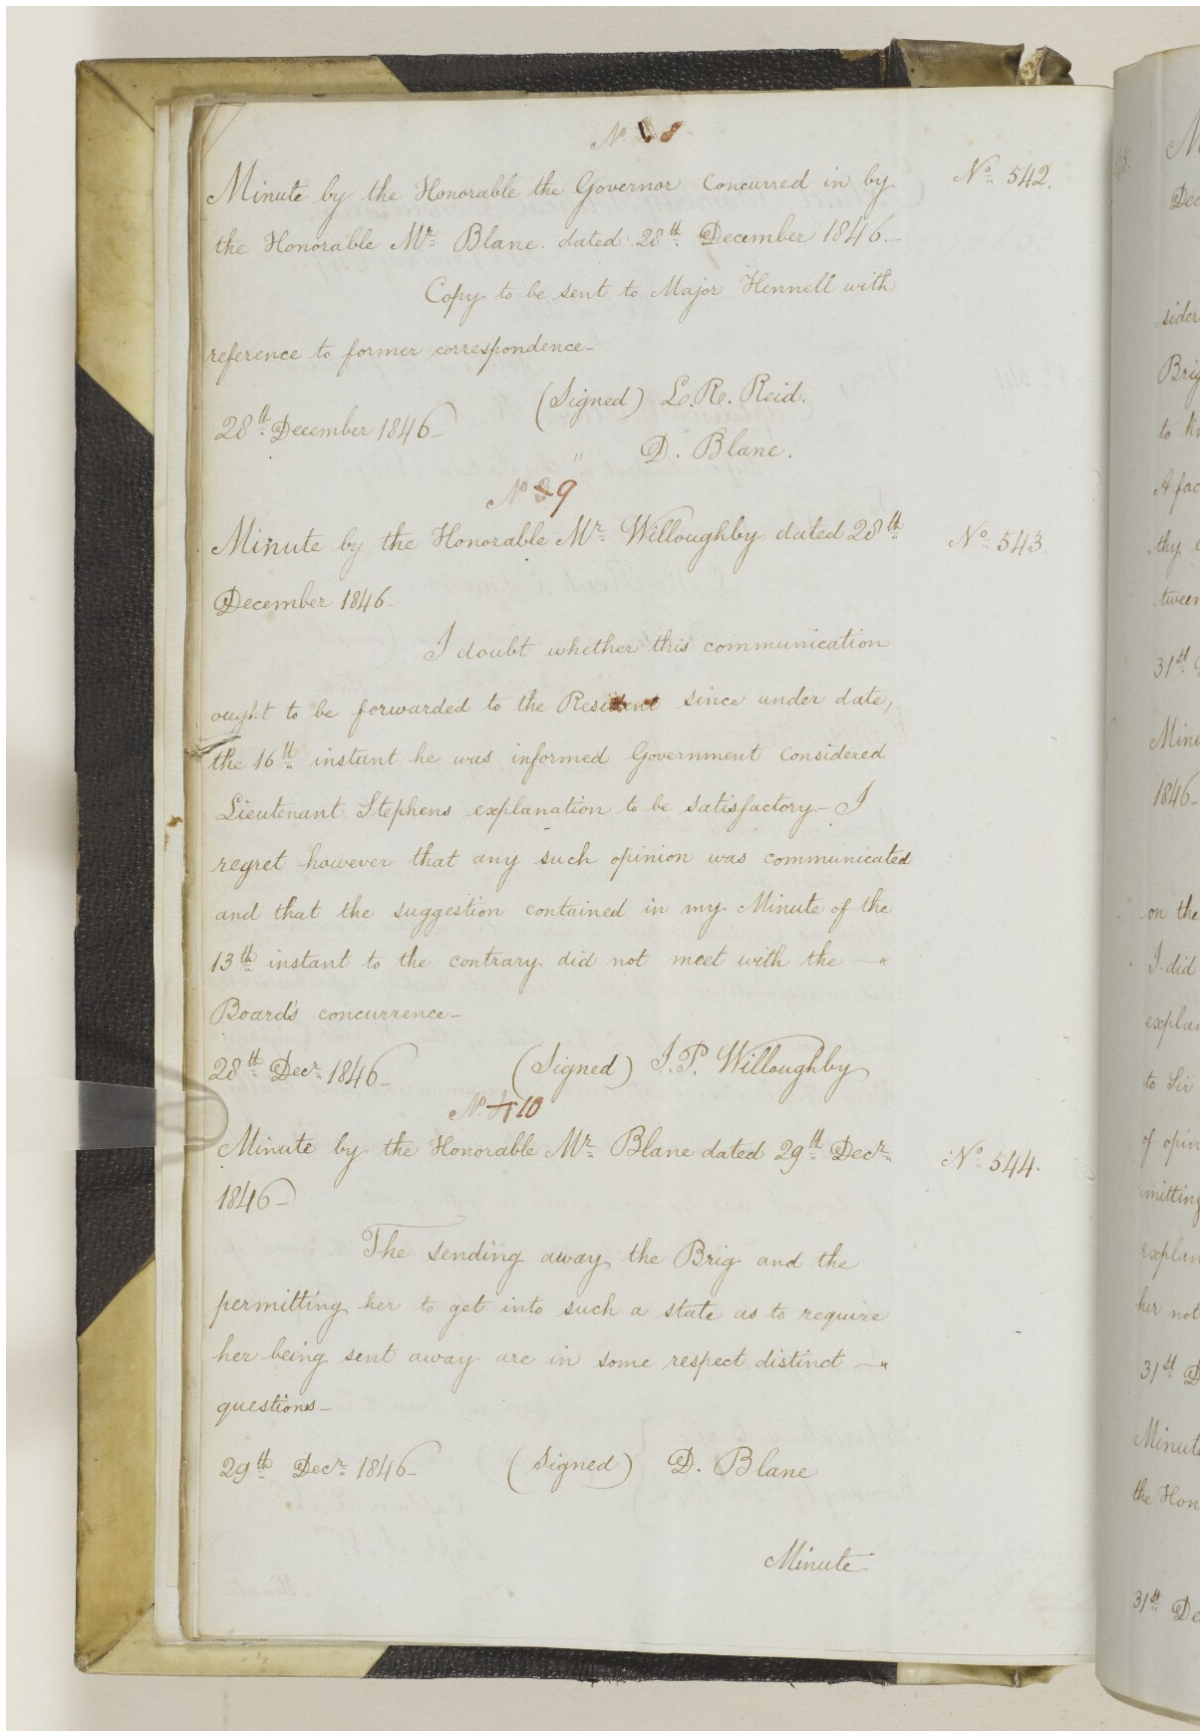 No. 8
Minute by the Honorable the Governor Concurred in by
No. 542.
the Honorable Mr. Blane. dated 28th December 1846.-
Copy to be sent to Major Hennell with
reference to former correspondence-
(Signed) L.R. Reid.
28th December 1846-
" D. Blane.
No 9
Minute by the Honorable Mr. Willoughby dated 28th
No. 543.
December 1846-
I doubt whether this communication
ought to be forwarded to the Resident since under date,
the 16th instant he was informed Government Considered
Lieutenant Stephens explanation to be satisfactory- I
regret however that any such opinion was communicated
and that the suggestion contained in my Minute of the
13th instant to the contrary did not meet with the -"
Board's concurrence-
28th Decr. 1846- (Signed) J.P. Willoughby
No. 10
Minute by the Honorable Mr. Blane dated 29th Decr.
No. 544.
1846-
The sending away the Brig and the
permitting her to get into such a state as to require
her being sent away are in some respect distinct -"
questions-
29th Decr. 1846- (Signed) D. Blane
Minute
Dec
sider
Brig
to
A fac
thy
tween
31st
Minu
1846-
on the
I did
explan
to Sir
of opin
mitting
explan
her not
31st D
Minute
the Hon
31st De